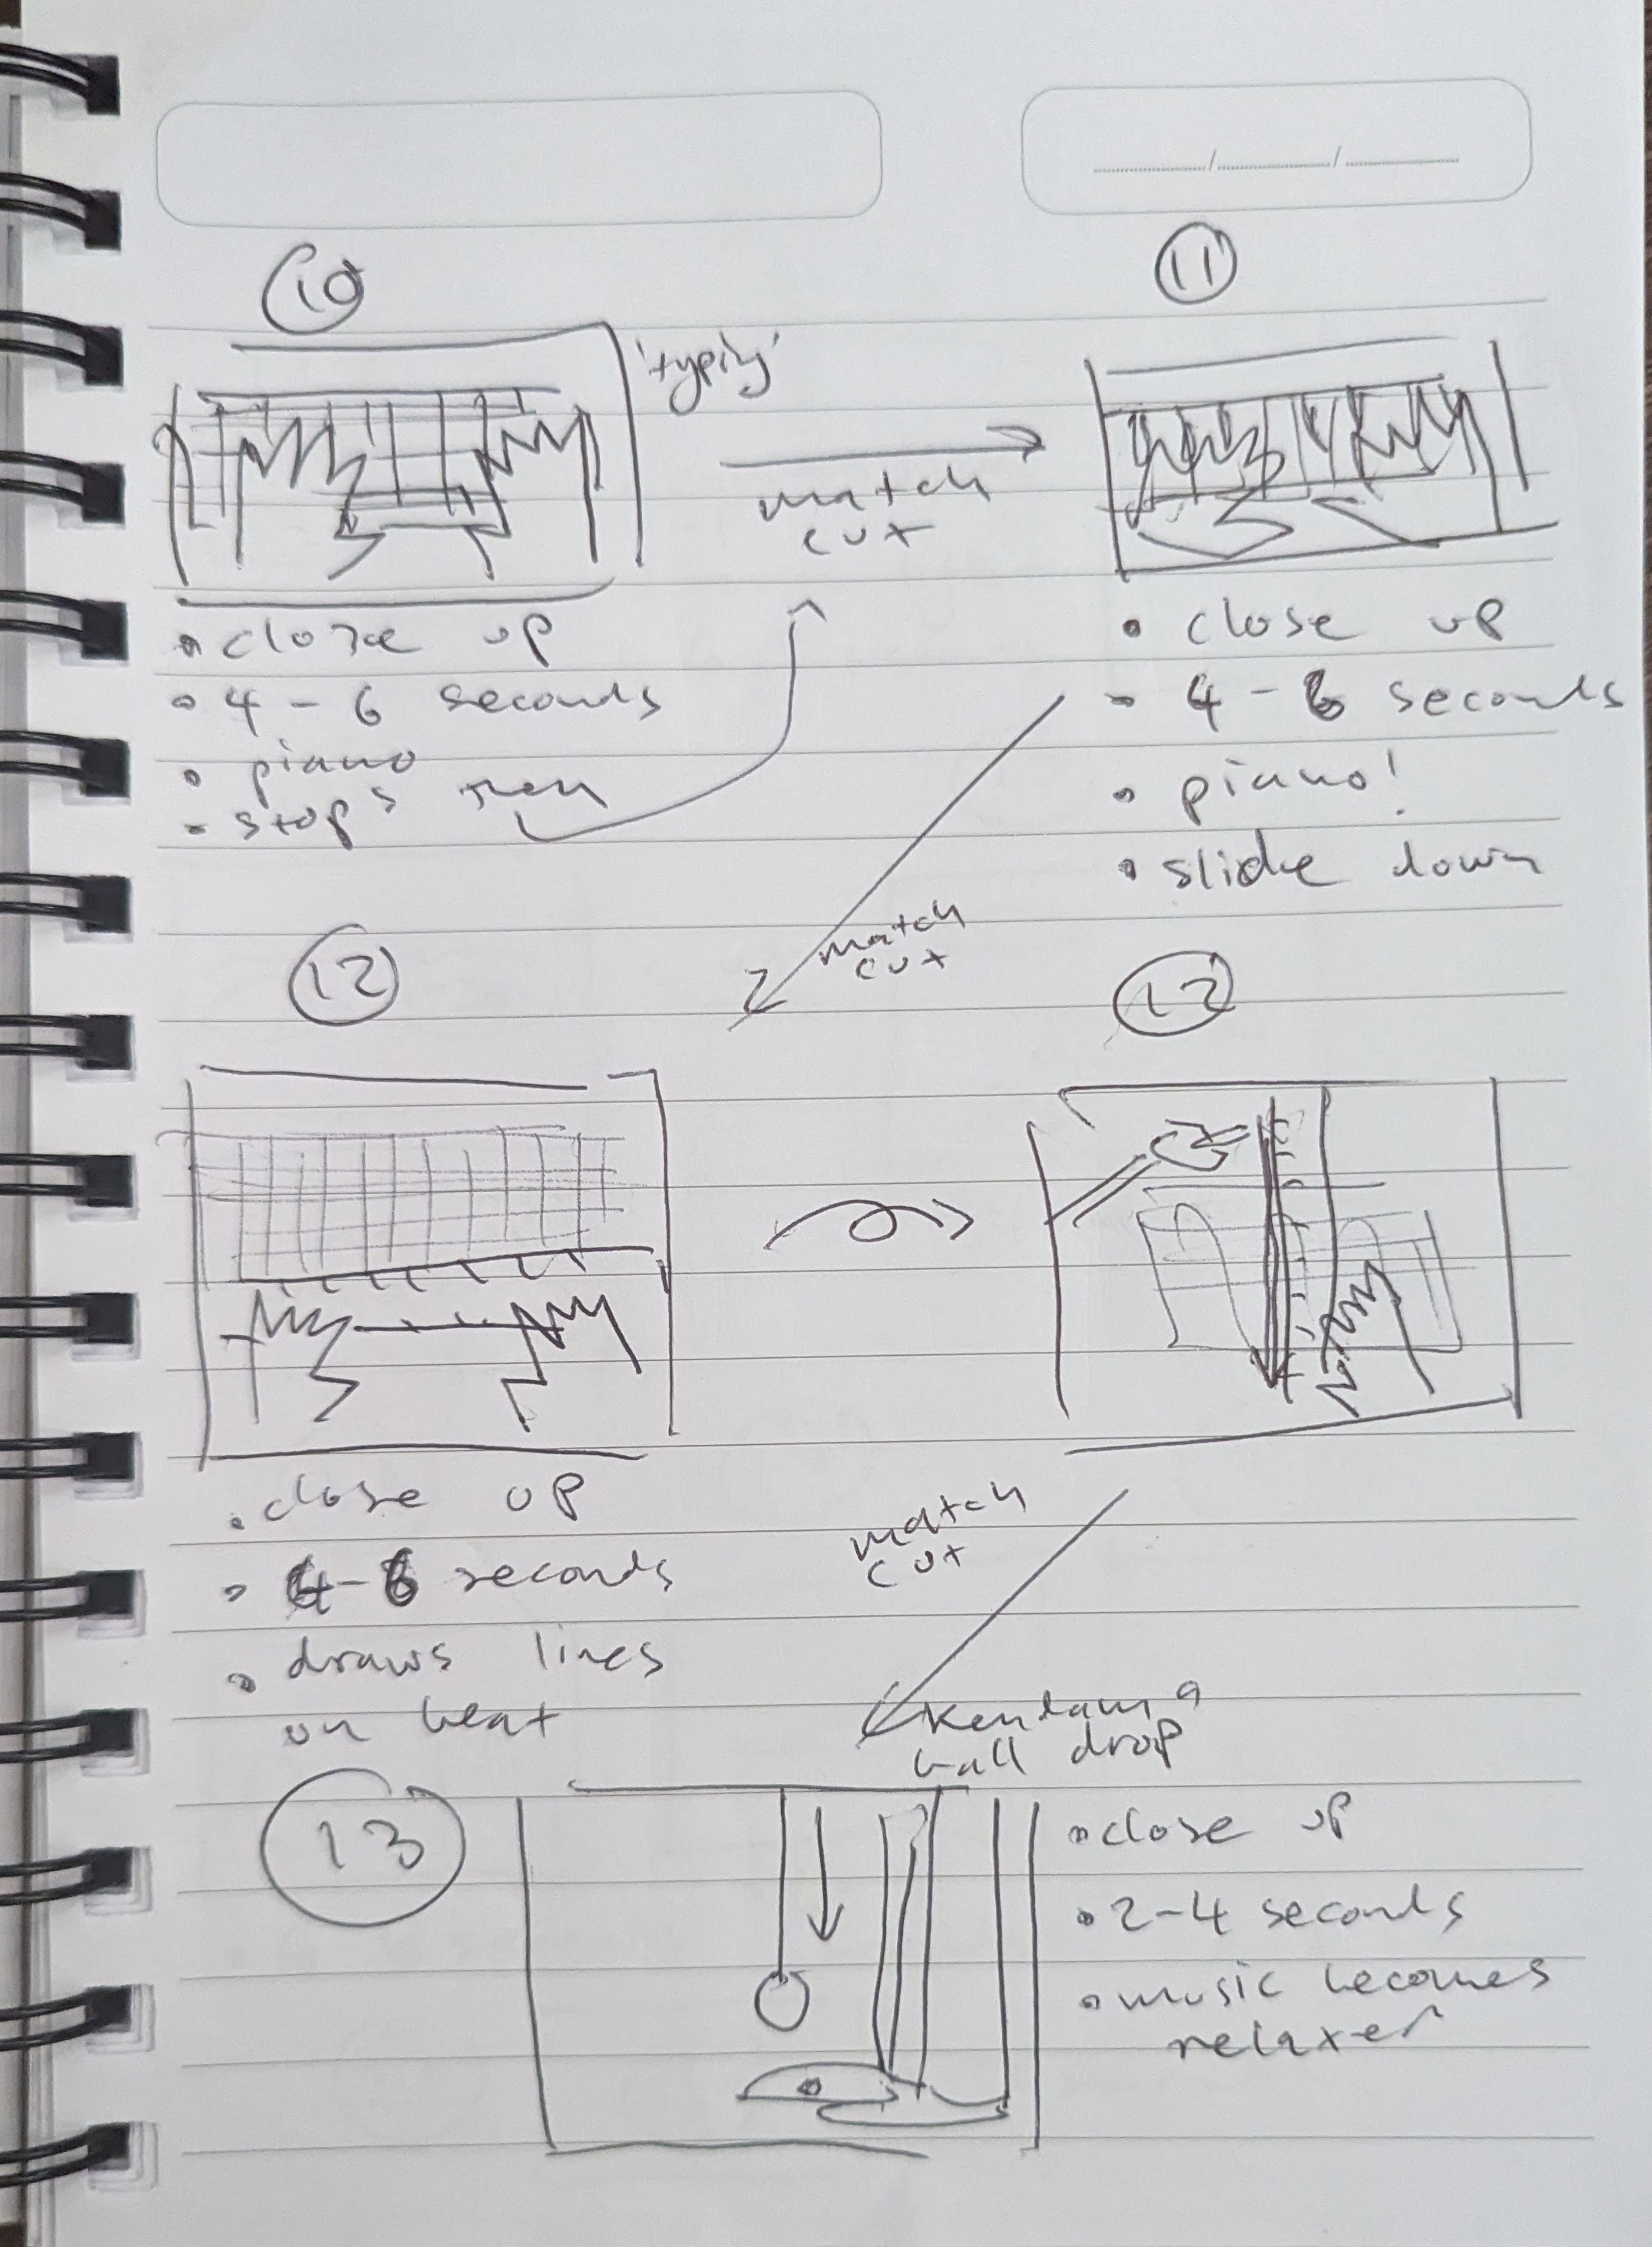 10
11
'typing'
match
cut
• close up
• 4 - 6 seconds
• piano
- stops then
• close up
- 4 - 6 seconds
• piano!
• slide down
match
cut
12
12
• close up
• 4 - 6 seconds
• draws lines
on beat
match
cut
Kendama
ball drop
13
• close up
• 2-4 seconds
• music becomes
relaxed